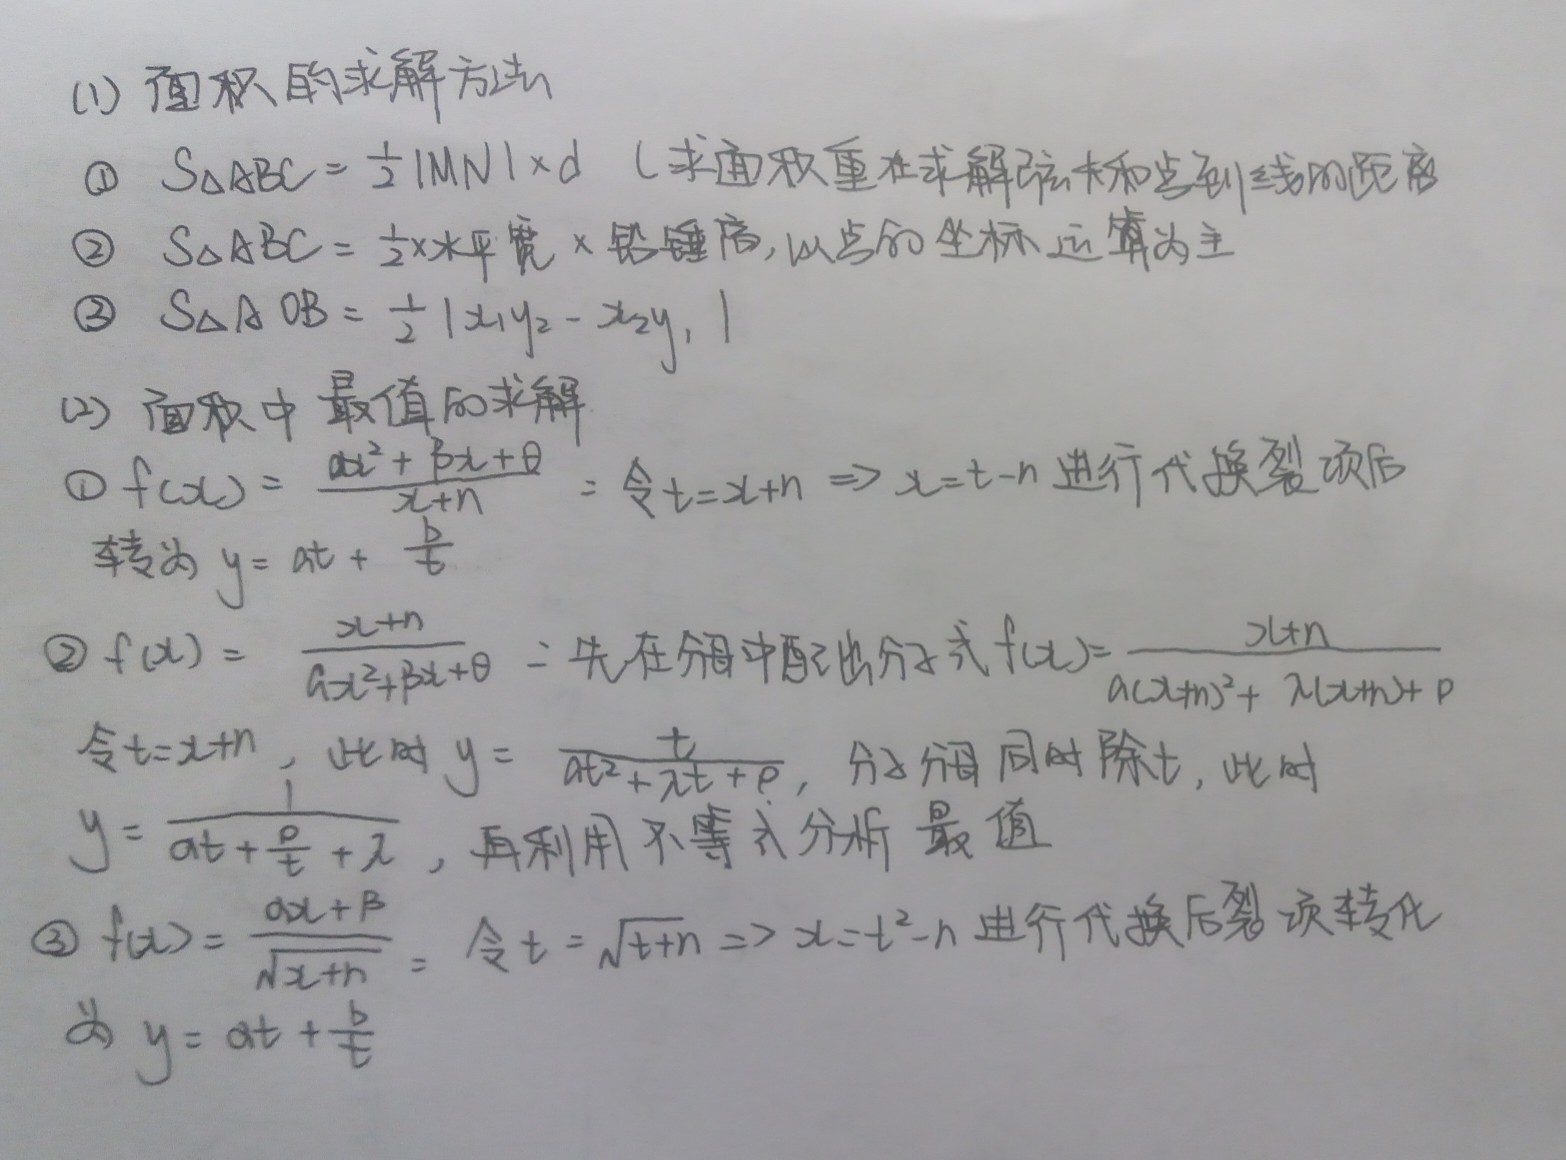 (1) 面积的求解方法
① S△ABC = 1/2 |MN| × d (求面积重在求解弦长和点到线的距离
② S△ABC = 1/2 × 水平宽 × 铅锤高, 以点的坐标运算为主
③ S△AOB = 1/2 |x₁y₂ - x₂y₁|
(2) 面积中最值的求解
① f(x) = (ax² + βx + θ)/(x+n) = 令t=x+n => x=t-n 进行代换裂项后
转为 y = at + b/t
② f(x) = (x+n)/(ax²+βx+θ) = 先在分母中配出分子式 f(x) = (x+n)/(a(x+n)² + λ(x+n) + ρ)
令t=x+n, 此时 y = t/(at²+λt+ρ), 分子分母同时除t, 此时
y = 1/(at + ρ/t + λ), 再利用不等式分析最值
③ f(x) = (ax+β)/√(x+n) = 令 t = √(t+n) => x=t²-n 进行代换后裂项转化
为 y = at + b/t